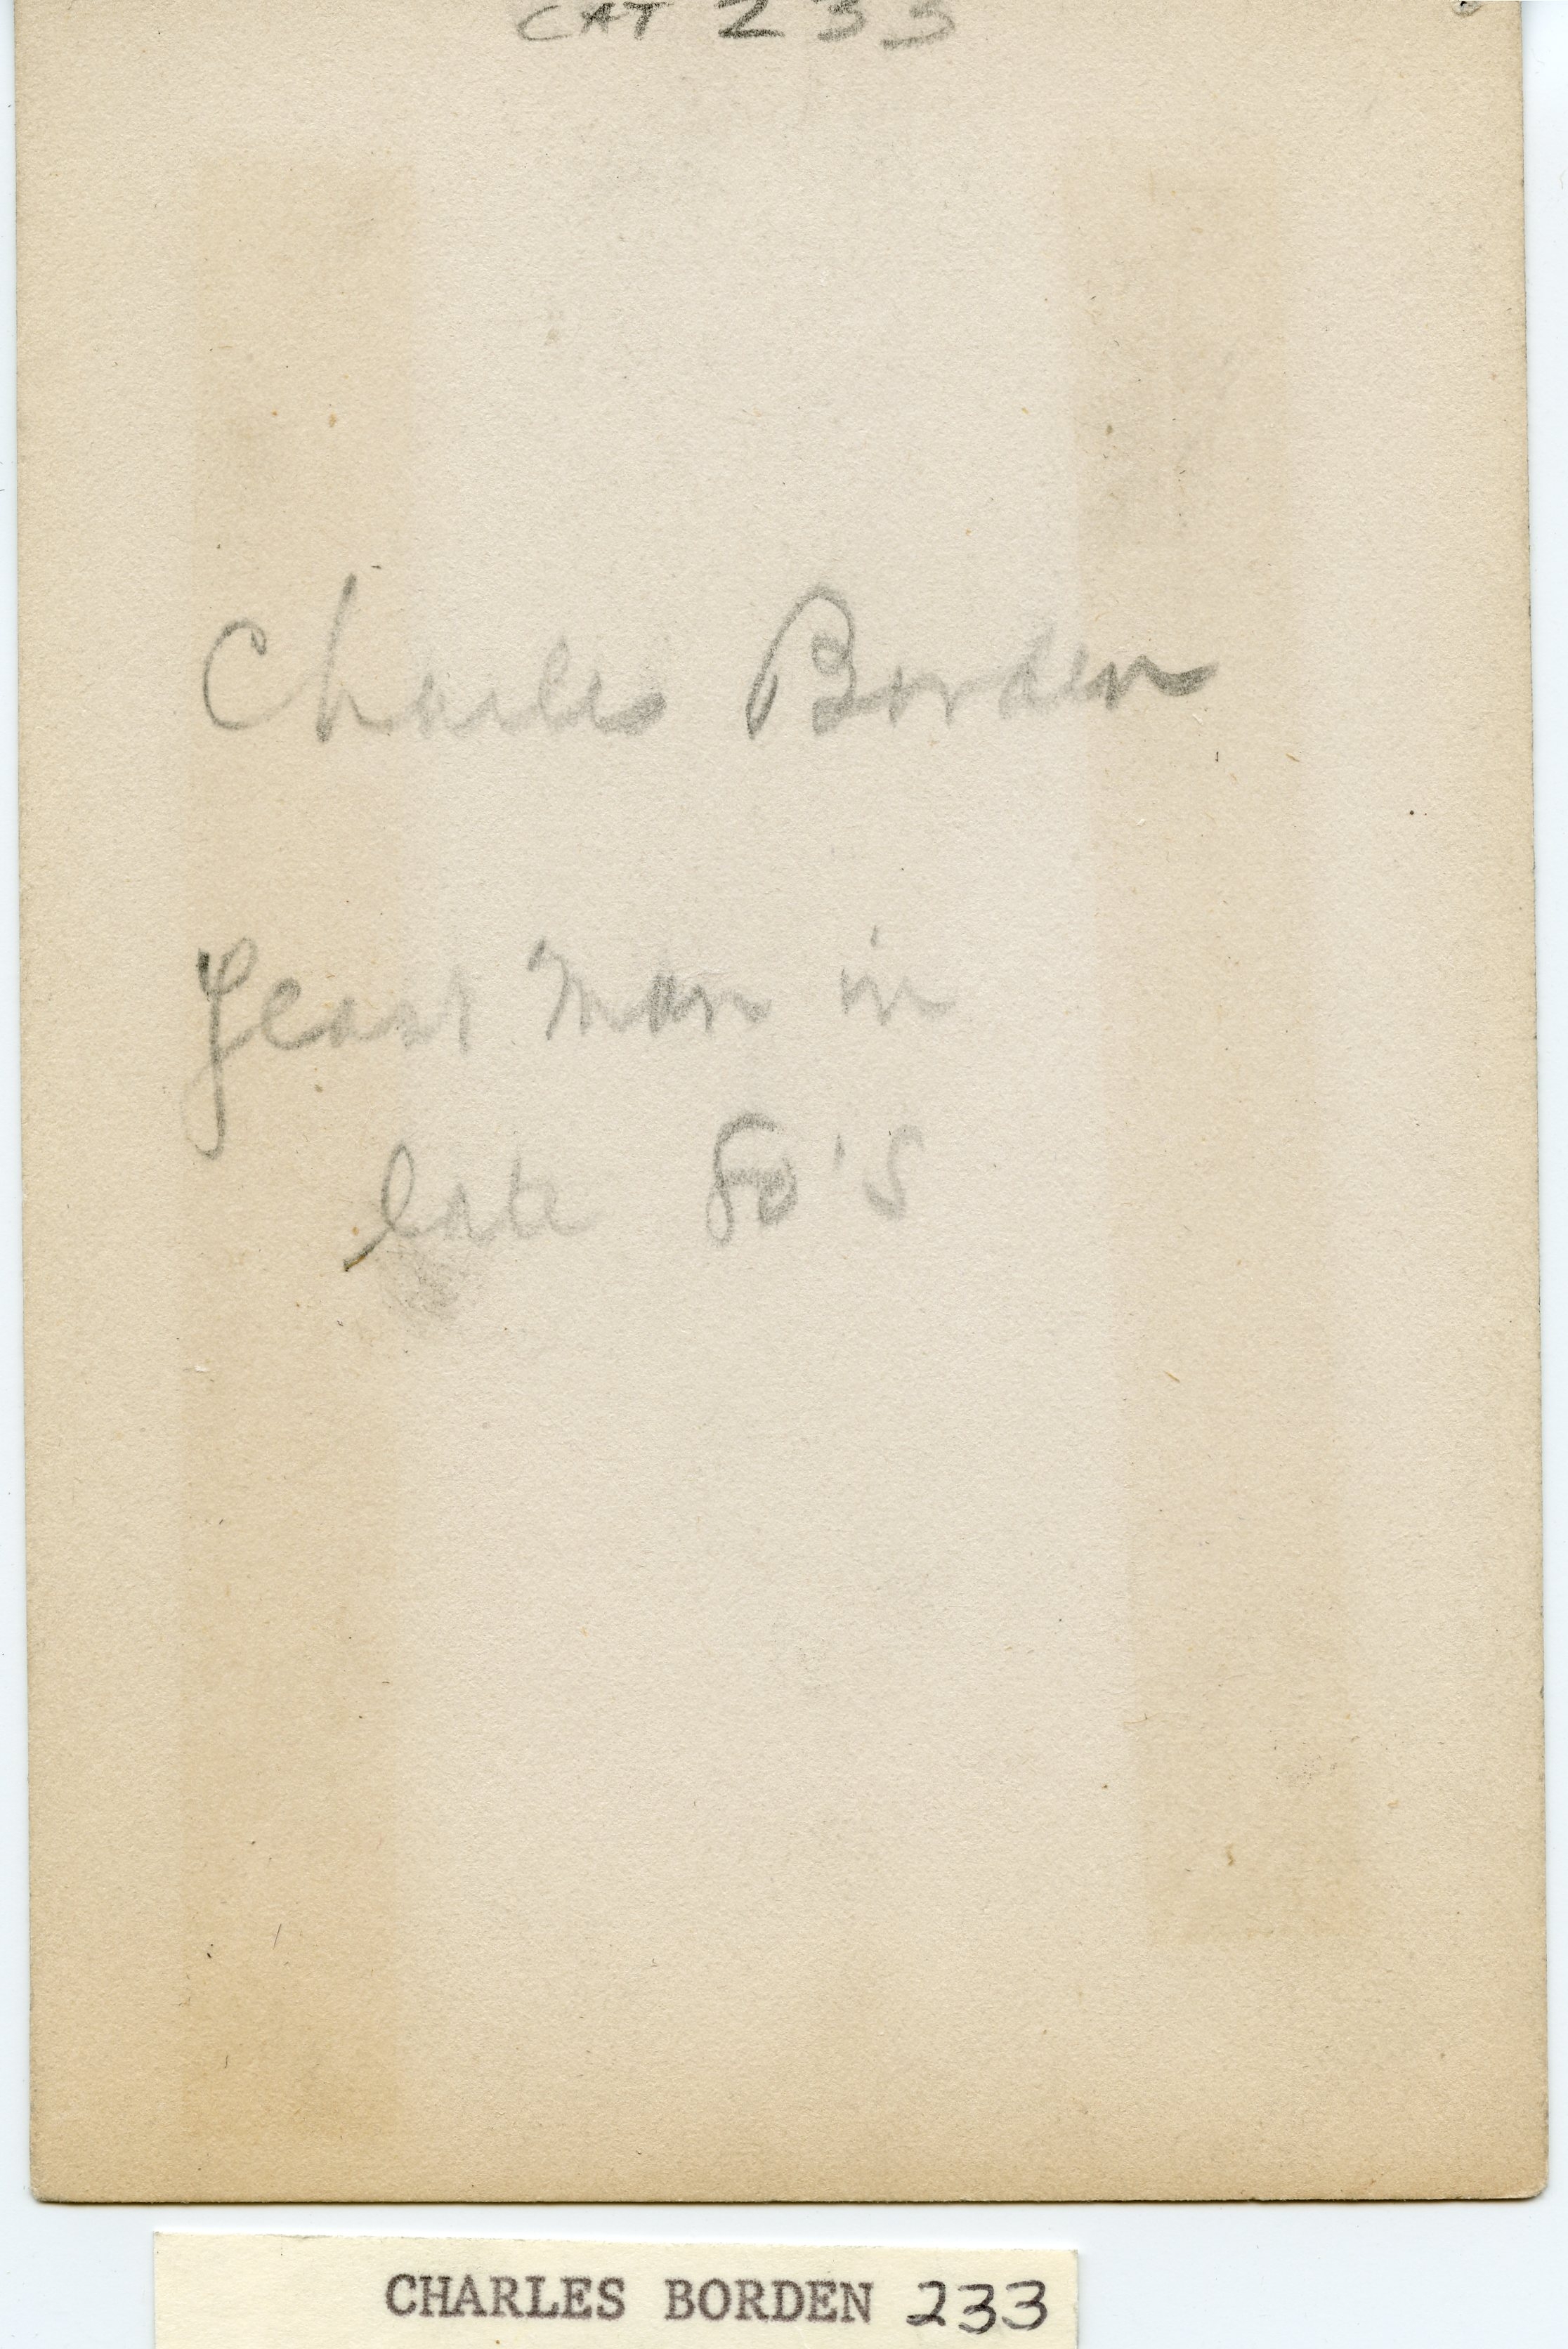 CAT 233
Charles Borden
Yeast Man in
late 80's
CHARLES BORDEN 233